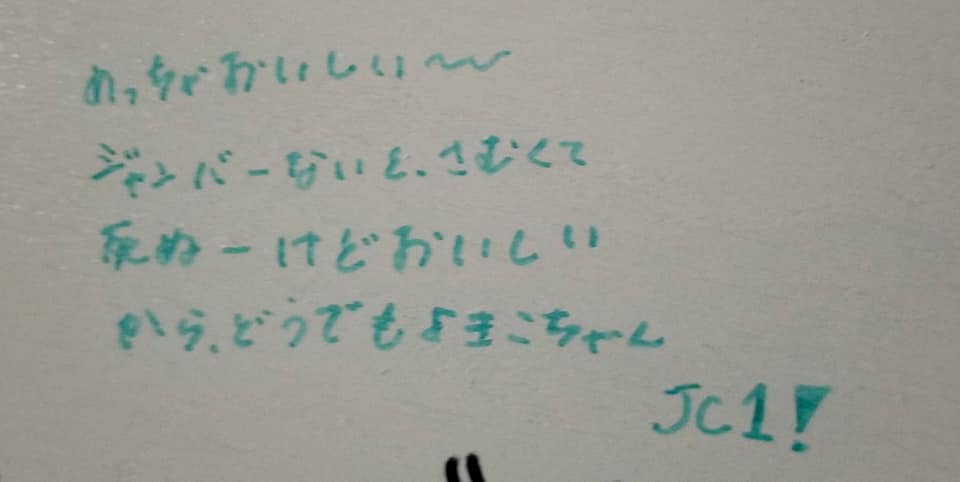 めっちゃおいしい〜〜
ジャンバーないと、さむくて
死ぬーけどおいしい
から、どうでもよきこちゃん
JC1!